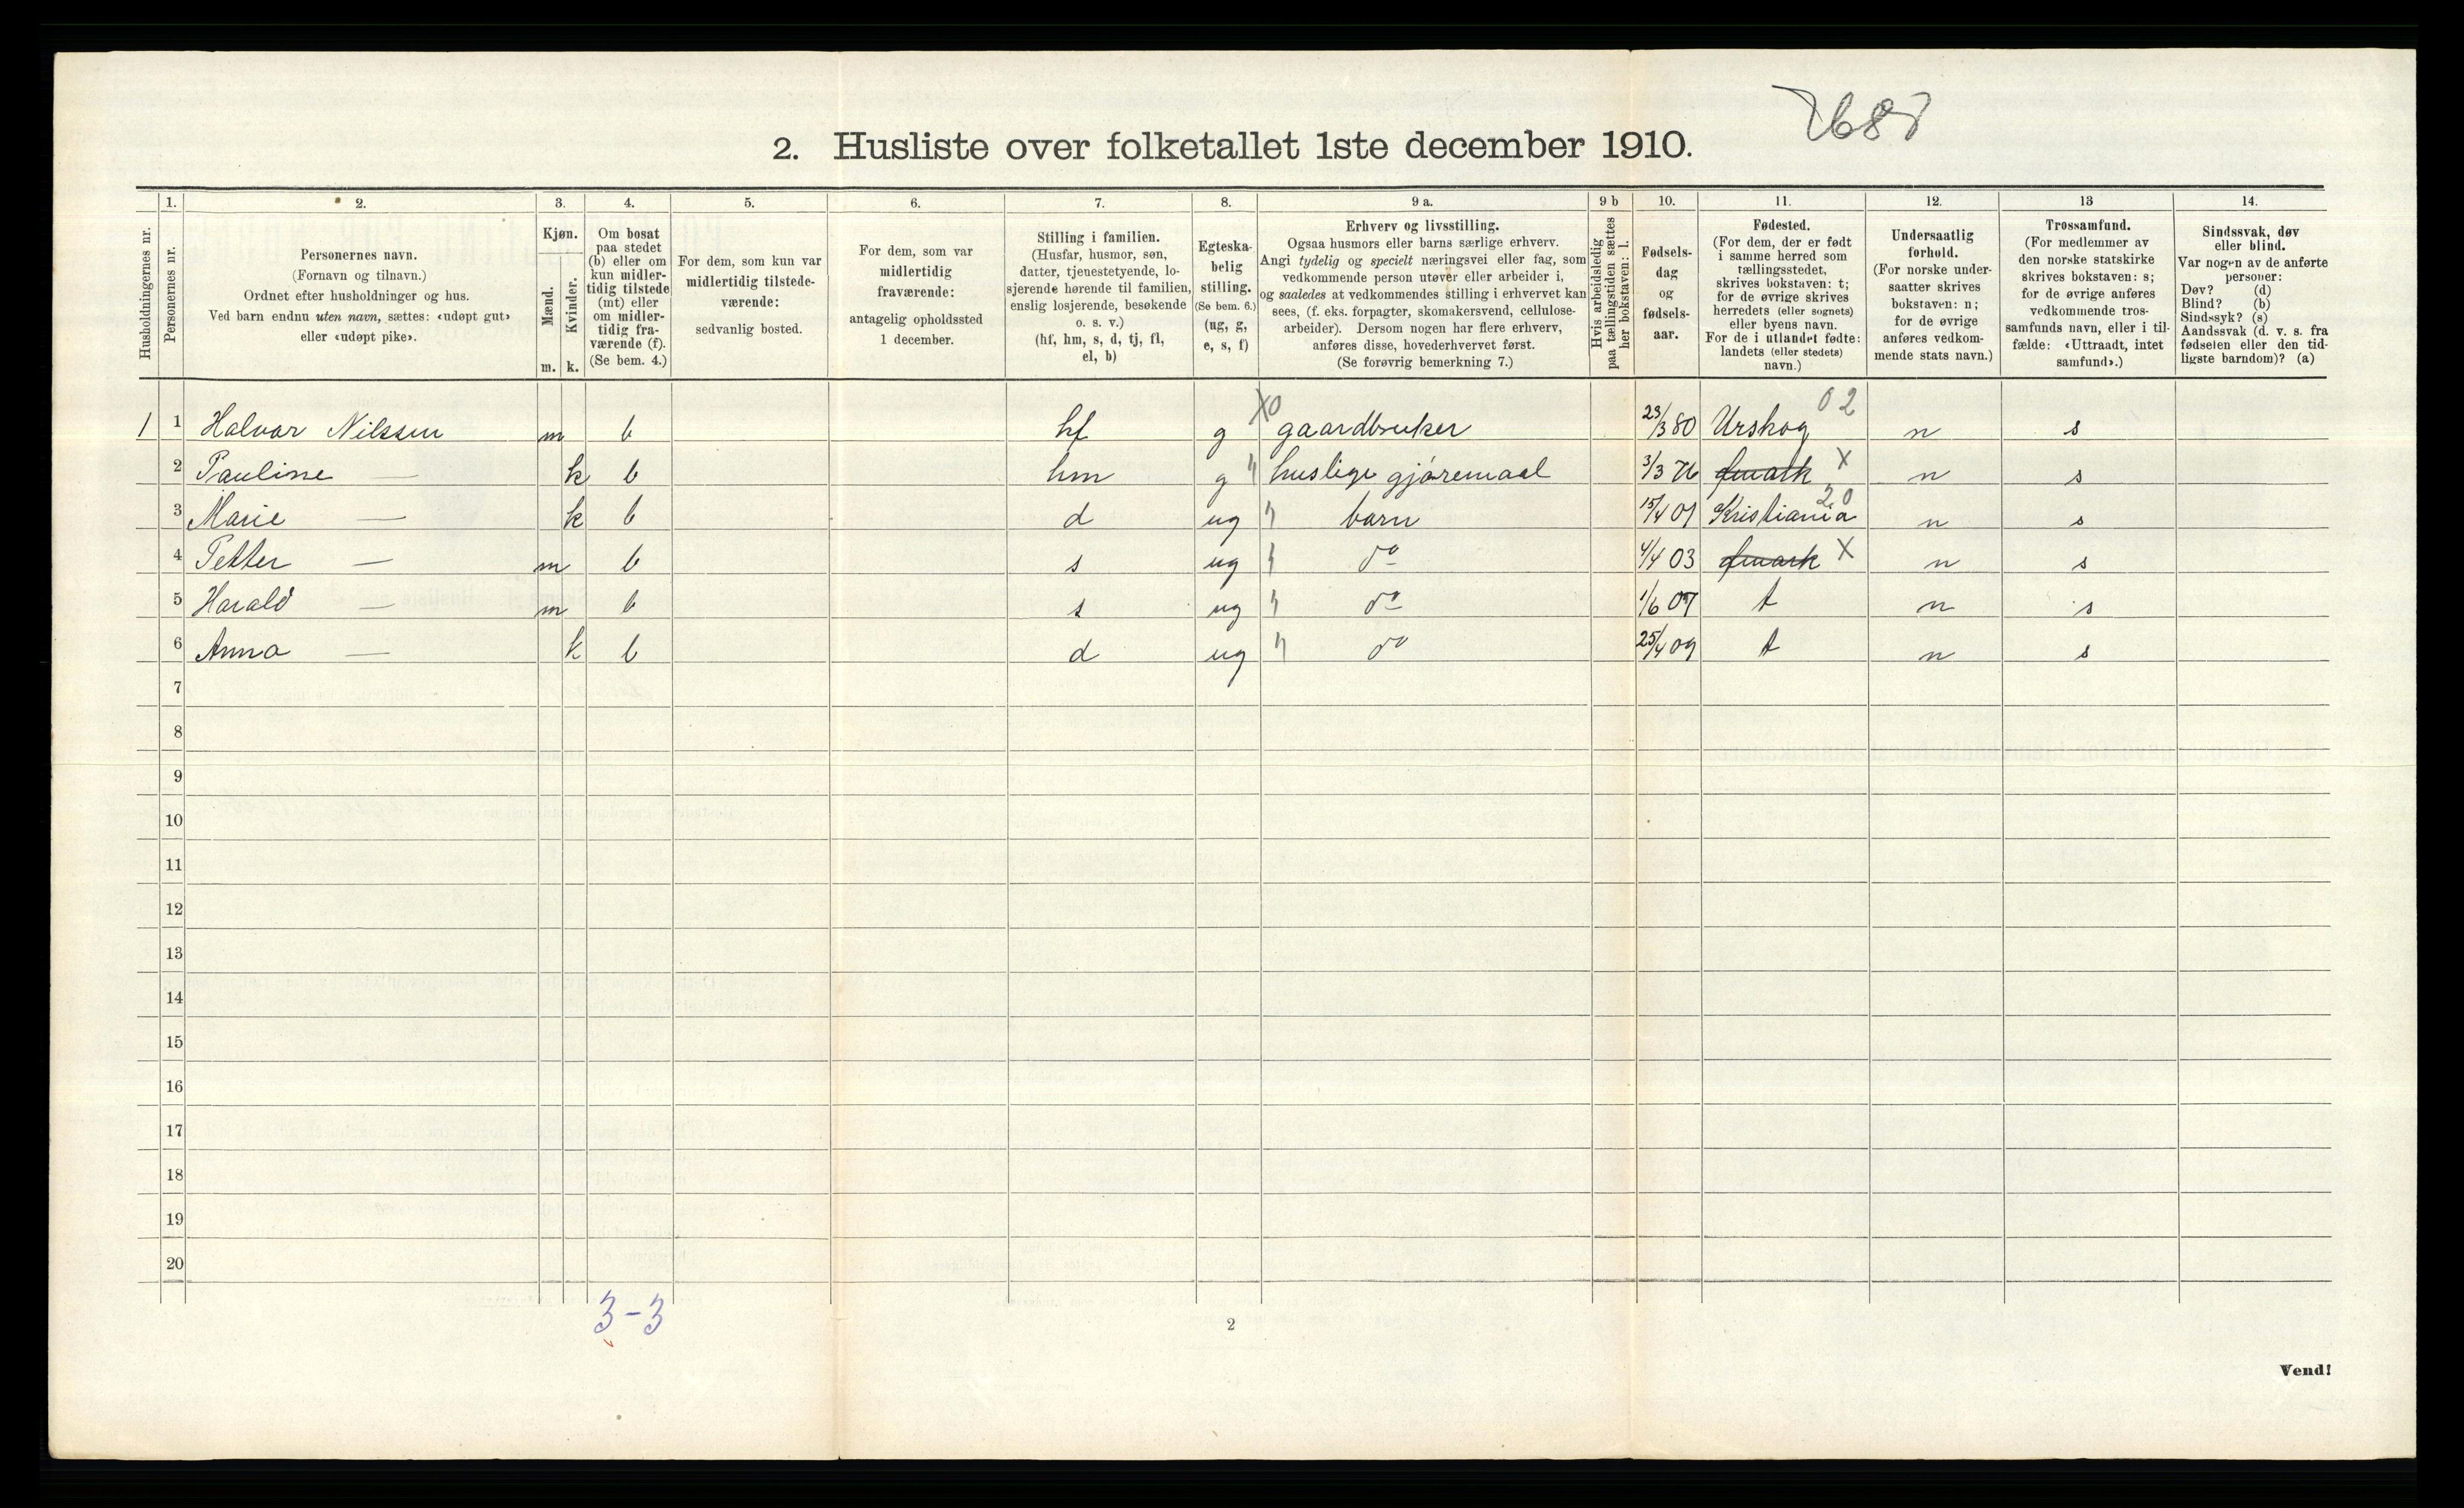 2. Husliste over folketallet 1ste december 1910.
1. 2. 3. 4. 5. 6. 7. 8. 9 a. 9 b 10. 11. 12. 13 14.
Husholdningernes nr.
Personernes nr.
Personernes navn.
(Fornavn og tilnavn.)
Ordnet efter husholdninger og hus.
Ved barn endnu uten navn, sættes: «udøpt gut»
eller «udøpt pike».
Kjøn.
Mænd.
Kvinder.
m. k.
Om bosat
paa stedet
(b) eller om
kun midler-
tidig tilstede
(mt) eller
om midler-
tidig fra-
værende (f).
(Se bem. 4.)
For dem, som kun var
midlertidig tilstede-
værende:
sedvanlig bosted.
For dem, som var
midlertidig
fraværende:
antagelig opholdssted
1 december.
Stilling i familien.
(Husfar, husmor, søn,
datter, tjenestetyende, lo-
sjerende hørende til familien,
enslig losjerende, besøkende
o. s. v.)
(hf, hm, s, d, tj, fl,
el, b)
Egteska-
belig
stilling.
(Se bem. 6.)
(ug, g,
e, s, f)
Erhverv og livsstilling.
Ogsaa husmors eller barns særlige erhverv.
Angi tydelig og specielt næringsvei eller fag, som
vedkommende person utøver eller arbeider i,
og saaledes at vedkommendes stilling i erhvervet kan
sees, (f. eks. forpagter, skomakersvend, cellulose-
arbeider). Dersom nogen har flere erhverv,
anføres disse, hovederhvervet først.
(Se forøvrig bemerkning 7.)
Hvis arbeidsledig
paa tællingstiden sættes
her bokstaven: l.
Fødsels-
dag
og
fødsels-
aar.
Fødested.
(For dem, der er født
i samme herred som
tællingsstedet,
skrives bokstaven: t;
for de øvrige skrives
herredets (eller sognets)
eller byens navn.
For de i utlandet fødte:
landets (eller stedets)
navn.)
Undersaatlig
forhold.
(For norske under-
saatter skrives
bokstaven: n;
for de øvrige
anføres vedkom-
mende stats navn.)
Trossamfund.
(For medlemmer av
den norske statskirke
skrives bokstaven: s;
for de øvrige anføres
vedkommende tros-
samfunds navn, eller i til-
fælde: «Uttraadt, intet
samfund».)
Sindssvak, døv
eller blind.
Var nogen av de anførte
personer:
Døv? (d)
Blind? (b)
Sindssyk? (s)
Aandssvak (d. v. s. fra
fødselen eller den tid-
ligste barndom)? (a)
X0 02
1 1 Halvar Nilssen m b hf g gaardbruker 23/3 80 Urskog n s
2 Pauline — k b hm g " huslige gjøremaal 3/3 76 X n s
20
3 Marie — k b d ug " barn 15/4 01 Kristiania n s
4 Petter — m b s ug " do 4/4 03 X n s
5 Harald — m b s ug " do 1/6 07 t n s
6 Anna — k b d ug " do 25/4 09 t n s
7
8
9
10
11
12
13
14
15
16
17
18
19
20
3-3
2
Vend!